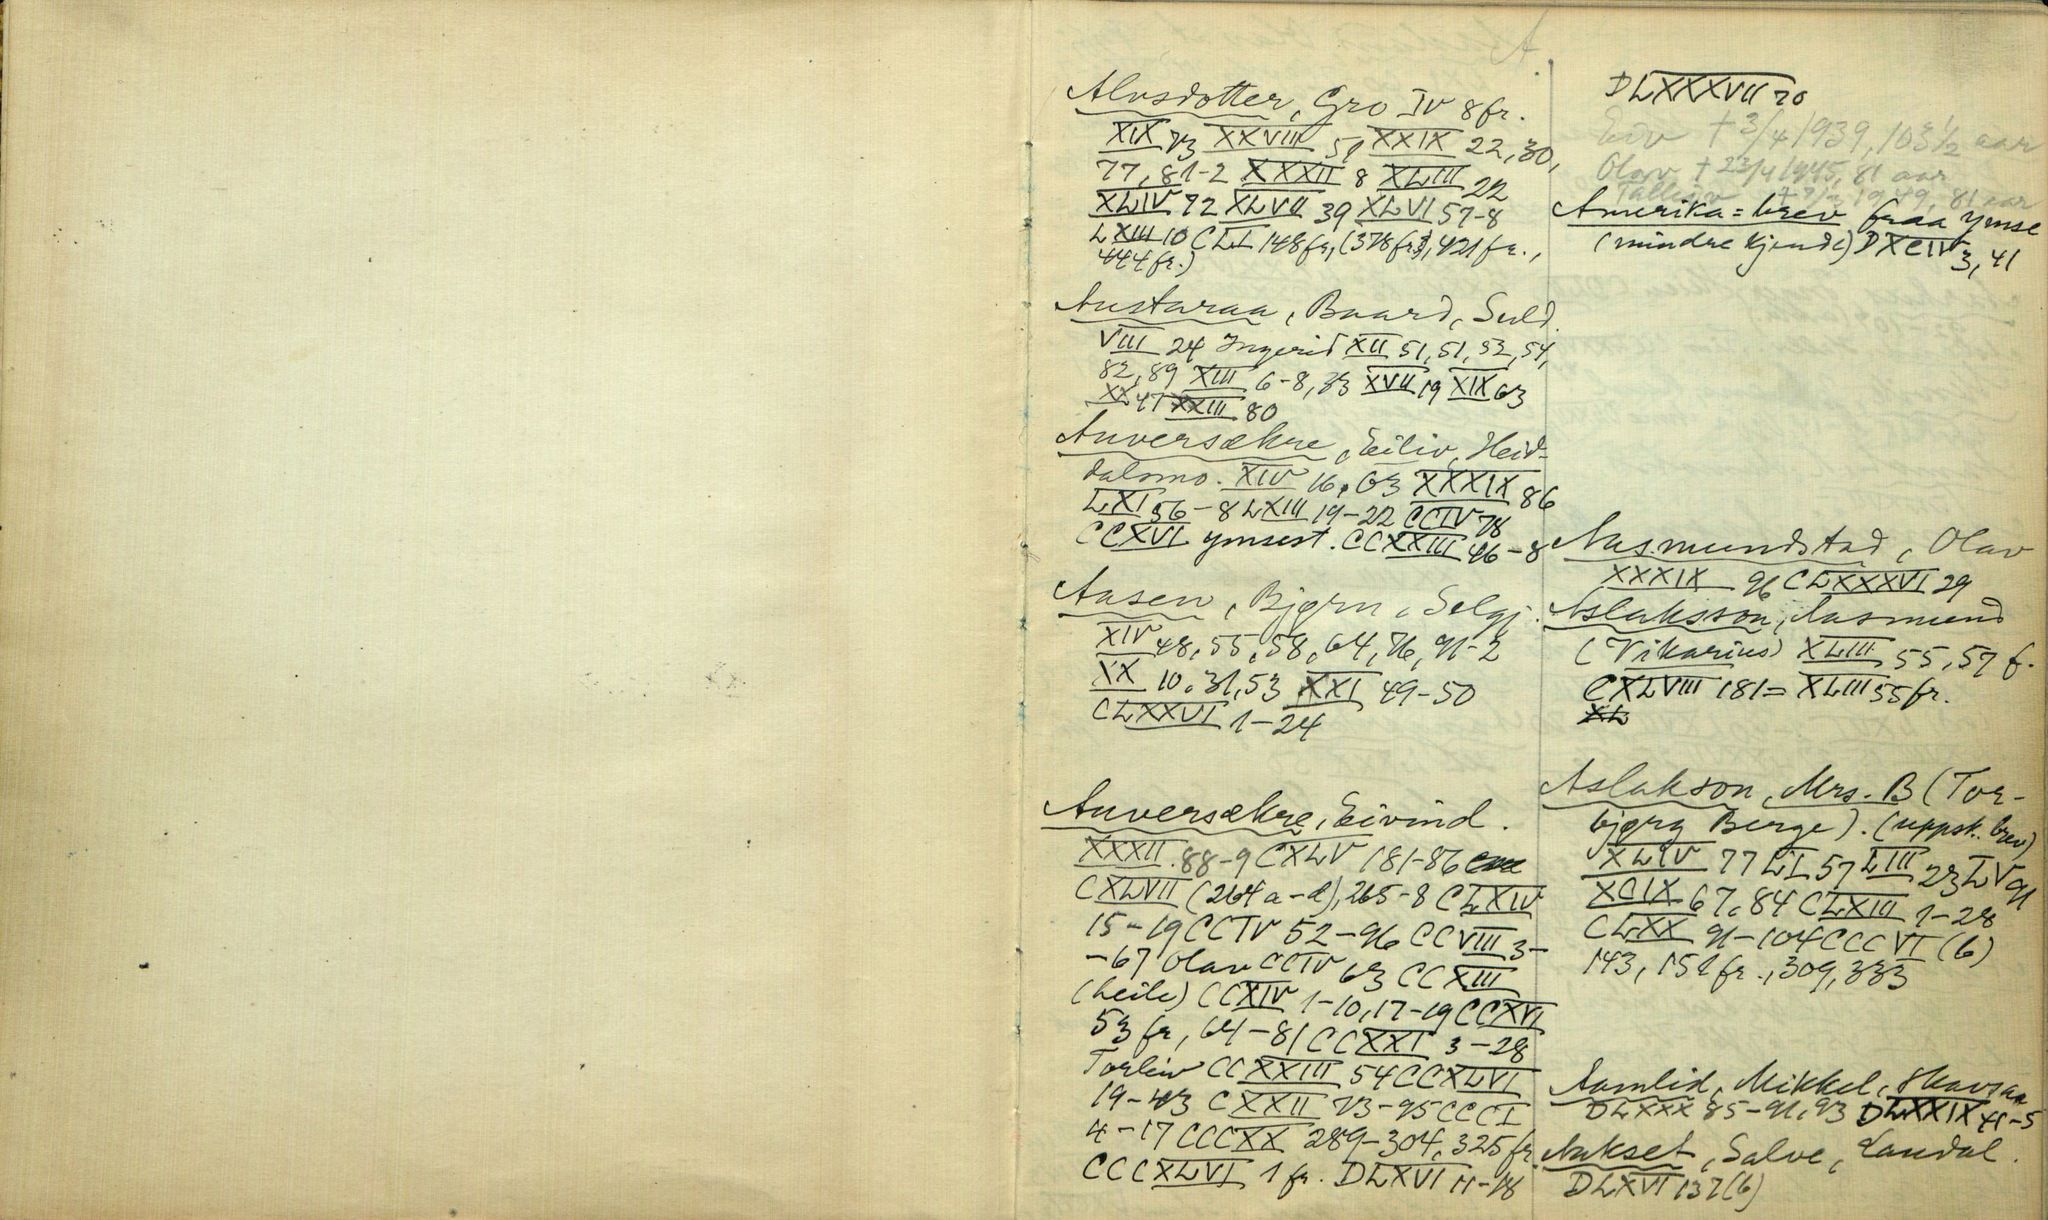 A
Alvsdotter, Gro IV 8 fr.
XIX 73 XXVIII 51 XXIX 22, 30,
77, 81-2 XXXII 8 XLIII 22
XLIV 72 XLVII 39 XLVI 57-8
LXIII 10 CLI 148 fr, (378 fr), 421 fr.,
444 fr.)
Austaraa, Baard, Suld.
VIII 24 Ingerid XII 51, 51, 52, 54,
82, 89 XIII 6-8, 33 XVII 19 XIX 63
XX 47 XXIII 80
Auversækre, Eiliv, Heid-
dalsmo. XIV 16, 63 XXXIX 86
LXI 56-8 LXIII 19-22 CCIV 78
CCXVI ymsest. CCXXIII 46-8
Aasen, Bjørn, Selgj.
XIV 48, 55, 58, 64, 76, 91-2
XX 10, 31, 53 XXI 49-50
CLXXVI 1-24
Auversækre, Eivind.
XXXII 88-9 CXLV 181-86
CXLVII (264 a-d), 265-8 CLXIV
15-19 CCIV 52-96 CCVIII 3-
-67 Olav CCIV 63 CCXIII
(heile) CCXIV 1-10, 17-19 CCXVI
53 fr, 64-81 CCXXI 3-28
Torleiv CCXXIII 54 CCXLVI
19-43 CXXII 73-95 CCCI
4-17 CCCXX 289-304, 325 fr.
CCCXLVI 1 fr. DLXVI 11-18
DLXXXVII 70
Eiv † 3/4 1939, 103 1/2 aar
Olav † 23/4 1945, 81 aar
1949, 81 aar
Amerika=brev fraa ymse
(mindre kjende) DXCIV 3, 41
Aasmundstad, Olav
XXXIX 96 CLXXXVI 29
Aslaksson, Aasmund
(Vikarius) XLIII 55, 57 f.
CXLVIII 181= XLIII 55 fr.
XL
Aslakson, Mrs. B (Tor-
bjørg Berge). (uppsk. brev)
XLIV 77 LI 57 LIII 23 LV 91
XCIX 67, 84 CLXIII 1-28
CLXX 91-104 CCCVI (6)
143, 152 fr., 309, 333
Aamlid, Mikkel,
DLXXX 85-91, 93 DLXXIX 41-5
Aakset, Salve, Laudal.
DLXVI 137 (6)